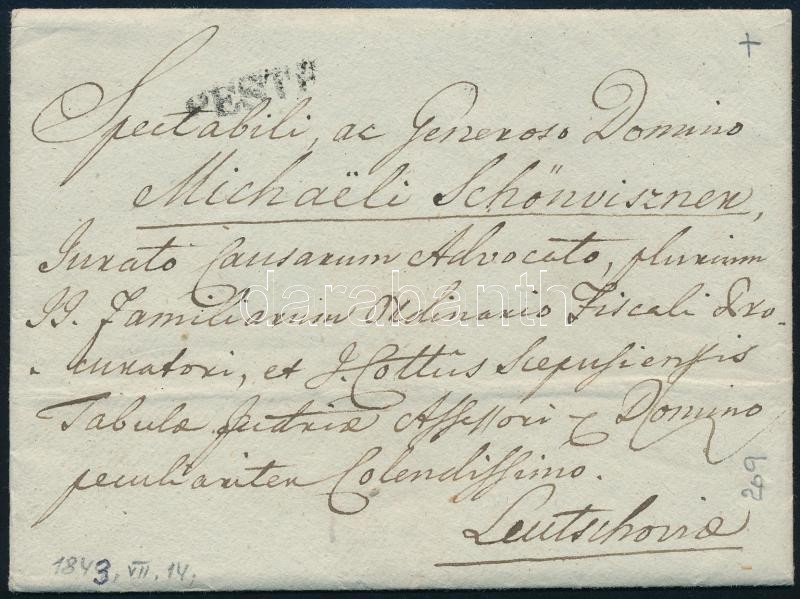 PESTH
+
Spectabili, ac Generoso Domino
Michaëli Schönviszner,
Jurato Causarum Advocato, plurium
II. Familiarum Ordinario Fiscali Pro-
curatori, et I. Cottũs Scepusiensis
Tabulæ Judriæ Assessori &c Domino
peculiariter Colendissimo.
Leutschoviæ
1843. VII. 14.
269
darabanth